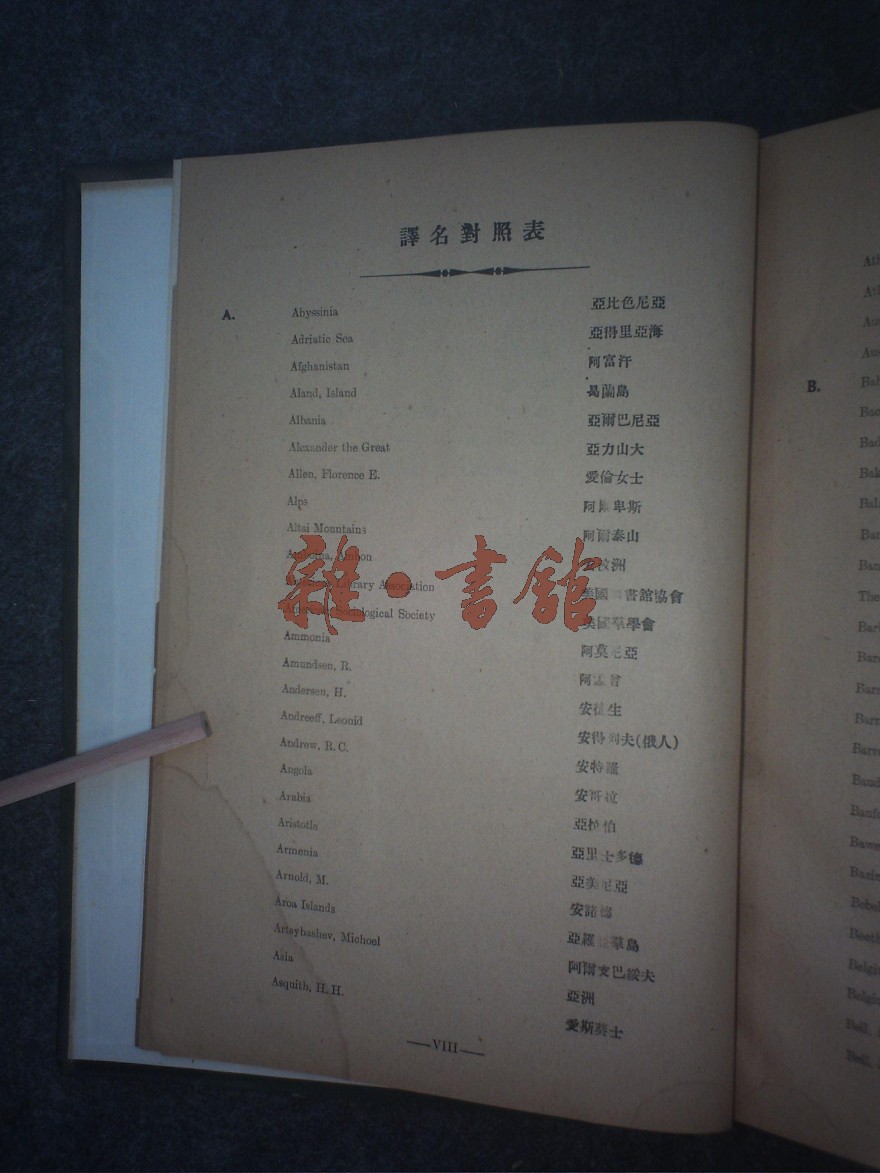 譯名對照表
A. Abyssinia 亞比色尼亞
Adriatic Sea 亞得里亞海
Afghanistan 阿富汗
Aland, Island 島
Albania 亞爾巴尼亞
Alexander the Great 亞力山大
Allen, Florence E. 愛倫女士
Alps 阿 卑斯
Altai Mountains 阿爾泰山
Ambon 洲
Library Association 美國 書館協會
Sociological Society 美國羣學會
Ammonia 阿莫尼亞
Amundsen, R. 阿
Andersen, H. 安徒生
Andreeff, Leonid 安得列夫(俄人)
Andrew, R. C. 安特羅
Angola 安哥拉
Arabia 亞拉伯
Aristotle 亞里士多德
Armenia 亞美尼亞
Arnold, M. 安諾德
Aroa Islands 亞羅 羣島
Artsybashev, Michoel 阿爾 巴綏夫
Asia 亞洲
Asquith, H. H. 愛斯葵士
—VIII—
雜·書館
B.